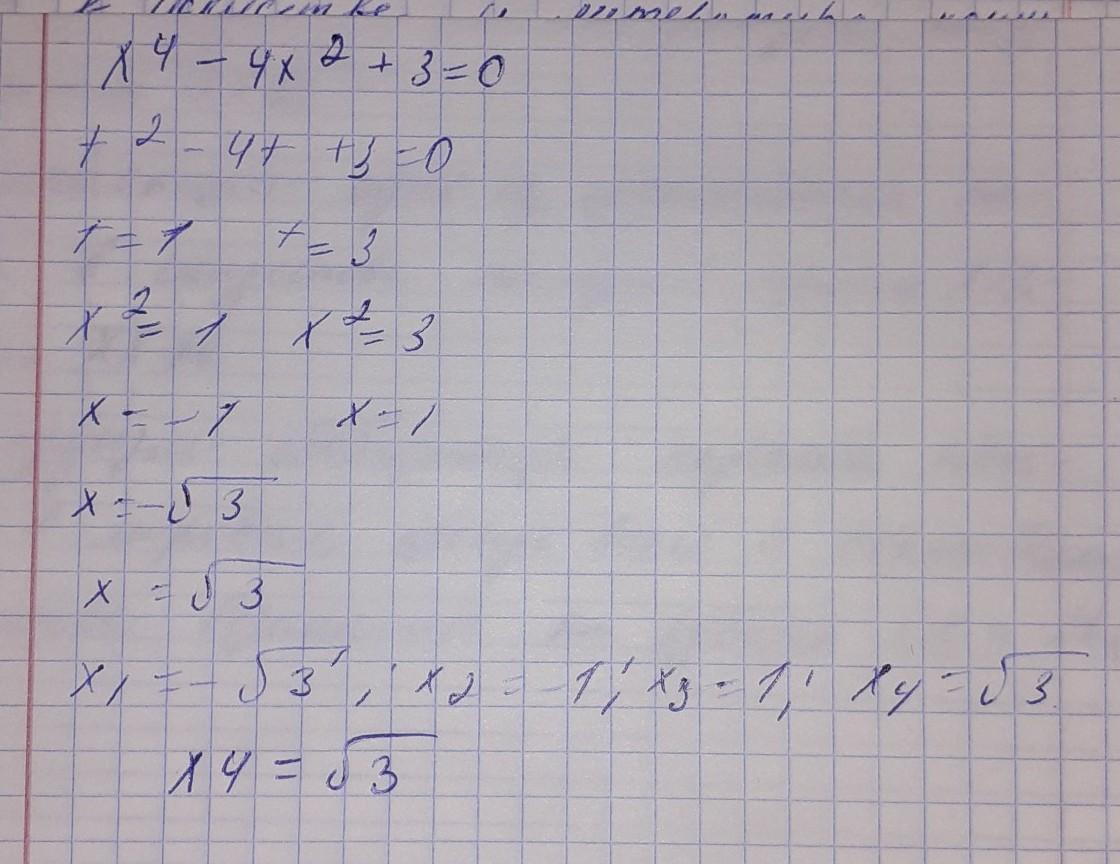 x⁴ - 4x² + 3 = 0
t² - 4t + 3 = 0
t = 1 t = 3
x² = 1 x² = 3
x = -1 x = 1
x = -√3
x = √3
x₁ = -√3; x₂ = -1; x₃ = 1; x₄ = √3
x4 = √3